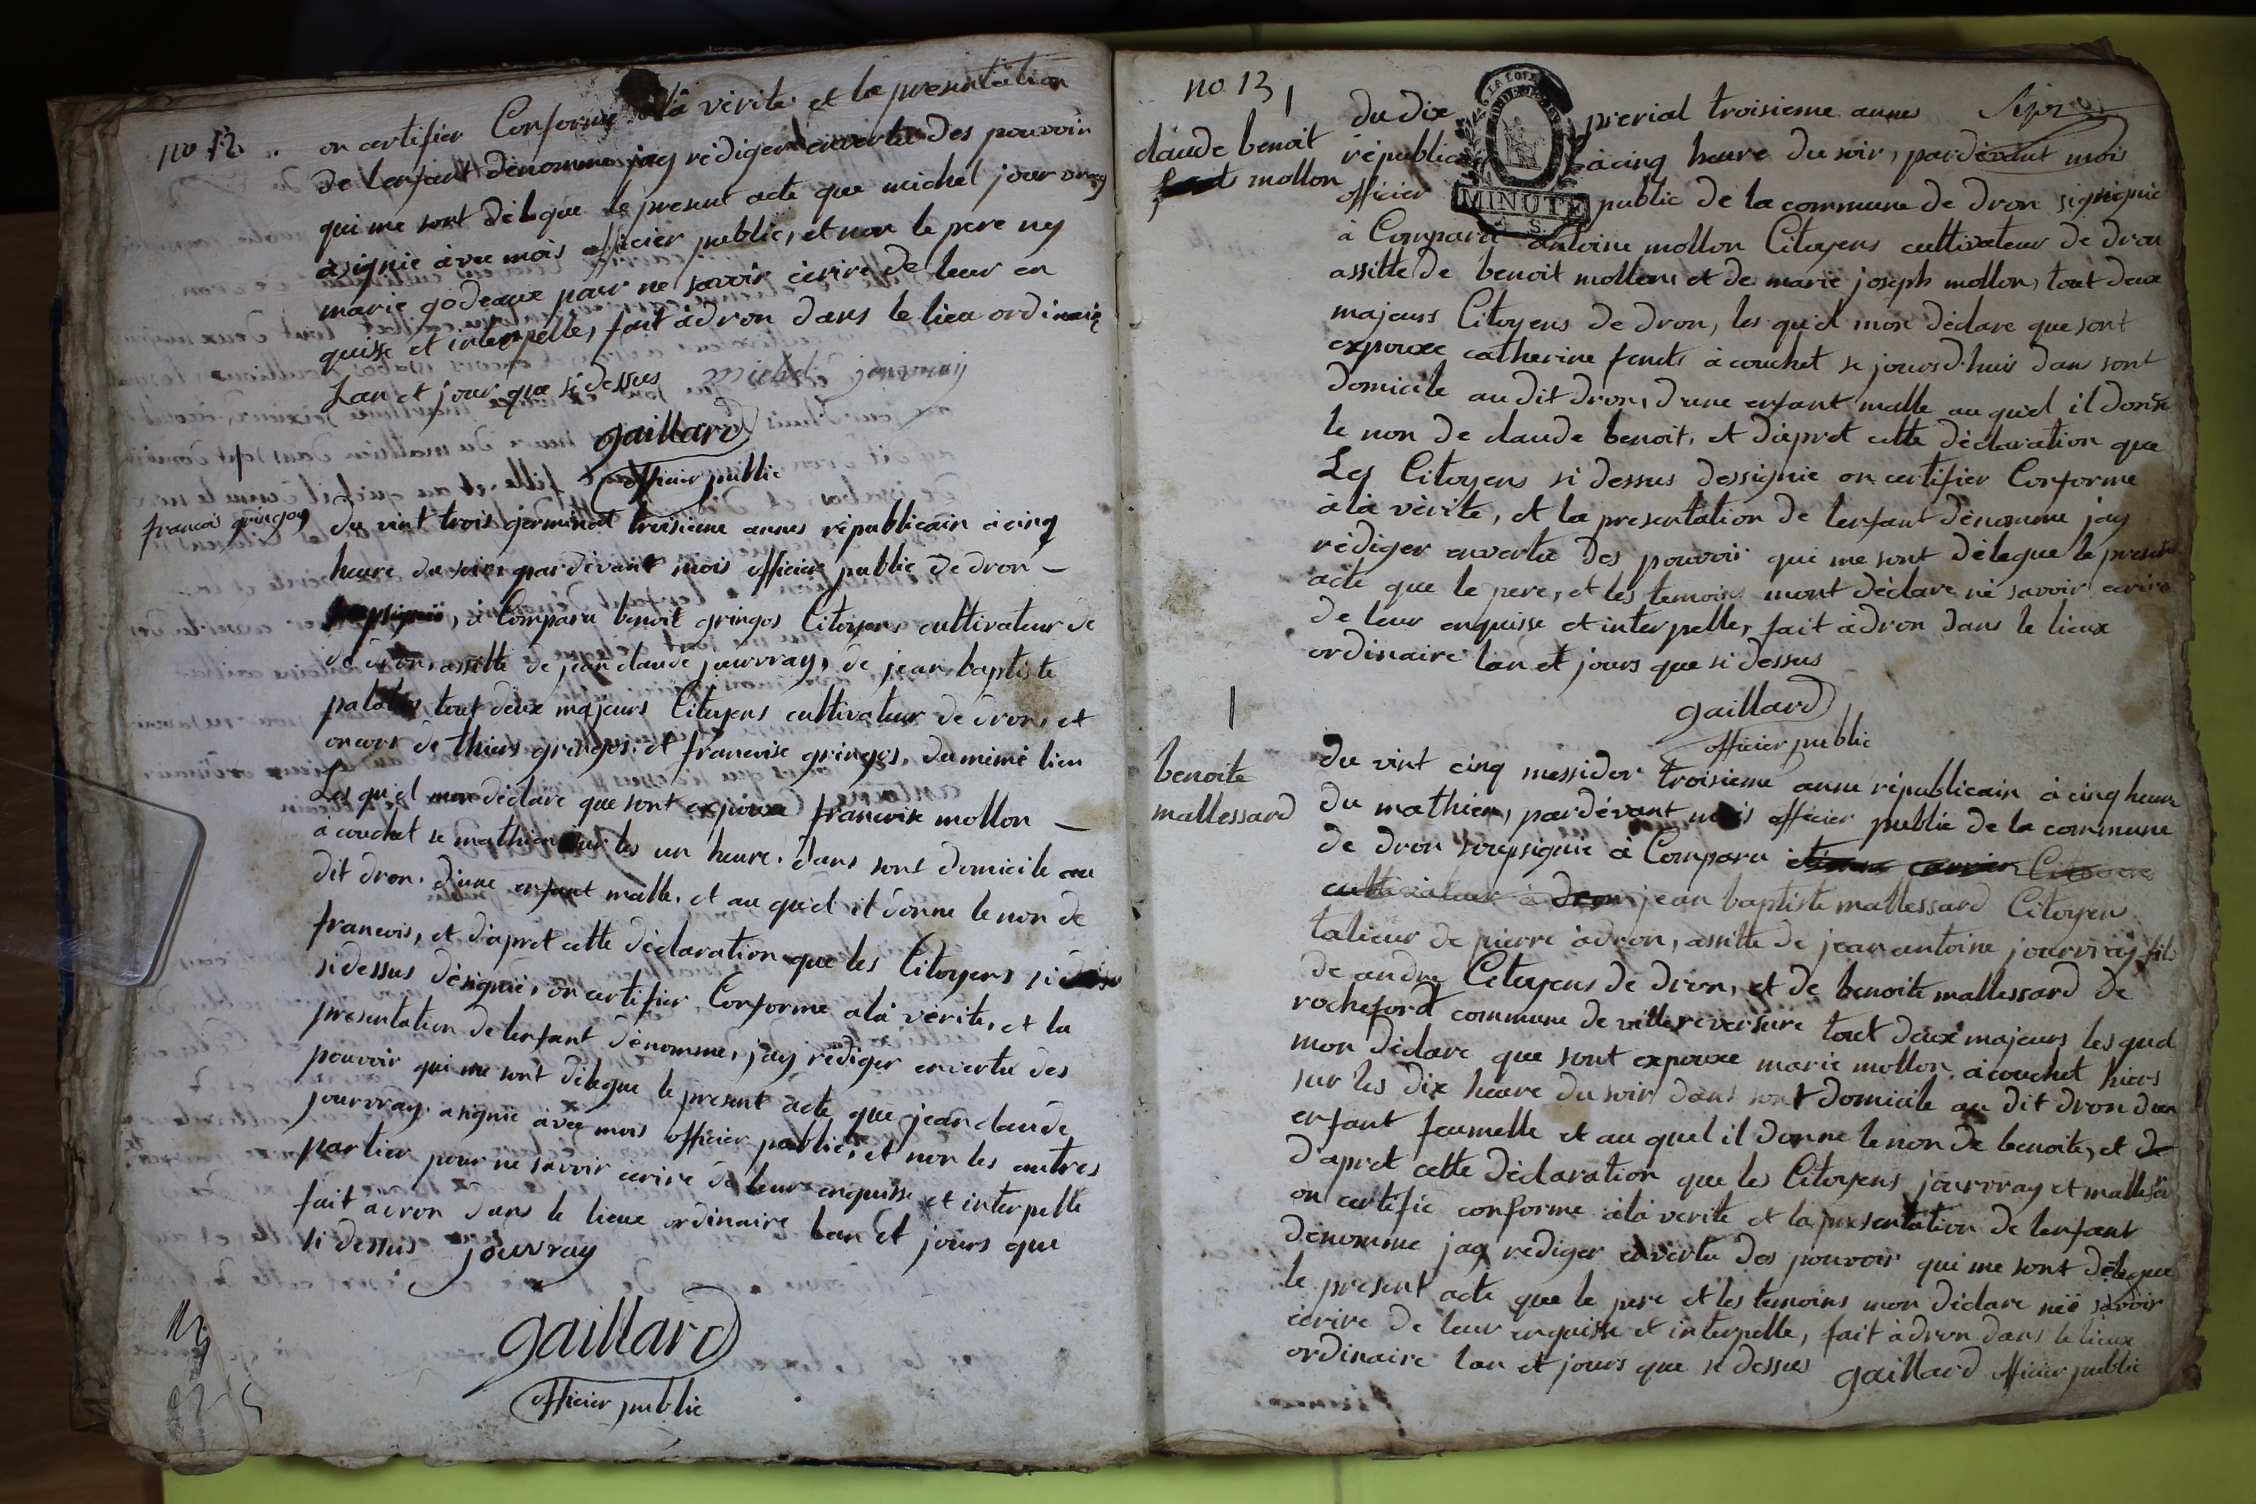 no 12
on certifier Conforme à là vèrite et la presentation
de lenfant dènomme jay rédiger envertu des pouvoir
qui me sont dèlegue le present acte que michel jouvray
à signie àvec mois officier public, et non le pere ny
marie godeaux pour ne savoir ècrire de leur en
quisse et interpelle, fait àdron dans le lieu ordinaire
Lan et jour que si dessus michel jouvray
gaillard
officier public
francois gringoz
du vint trois germinal troisieme annes rèpublicain à cinq
heure du soir, pardèvant mois officier public de dron –
, à Comparu benoit gringos Citoyens cultivateur de
de dron, assitte de jean claude jouvray, de jean baptiste
tout deux majeurs Citoyens cultivateur de dron, et
oncors de thiers gringos, et francoise gringos, du mimè lieu
Les qu'el mon dèclare que sont expouxe francoise mollon –
à couchet se mathien sur les un heure, dans sont domicile au
dit dron, d'une enfant malle, et au qu'el il donne le non de
francois, et d'apret cette déclaration que les Citoyens si
si dessus dèsignie, on certifier Conforme à là vérite, et la
presentation de lenfant dènomme, jay rèdiger envertu des
pouvoir qui me sont dèlegue le present acte que jean claude
jouvray à signie àvec mois officier public, et non les autres
partier pour ne savoir ècrire de leur enquisse et interpelle
fait àdron dans le lieux ordinaire lan et jours que
si dessus jouvray
gaillard
officier public
no 13
claude benoit
mollon
du dix prerial troisieme annes
rèpublic à cinq heure du soir, pardèvant mois
officier public de la commune de dron
MINUTE
à Comparu antoine mollon Citoyens cultivateur de dron
assitte de benoit mollon, et de marie joseph mollon, tout deux
majeurs Citoyens de dron, les qu'el mon dèclare que sont
expouxe catherine à couchet se jours d'huis dans sont
domicile au dit dron, d'une enfant malle au qu'el il donne
le non de claude benoit, et d'apret cette dèclaration que
Les Citoyens si dessus dessignie on certifier Conforme
à là vèrite, et la presentation de lenfant dènomme jay
rèdiger envertu des pouvoir qui me sont dèlegue le present
acte que le pere, et les temoins mont dèclare nè savoir ecrire
de leur enquisse et interpelle, fait àdron dans le lieux
ordinaire lan et jours que si dessus
gaillard
officier public
benoite
mallessard
du vint cinq messidor troisieme anne rèpublicain à cinq heure
du mathien, pardèvant mois officier public de la commune
de dron soupsignie à Comparu
cultivateur à dron jean baptiste mallessard Citoyen
talieur de pierre àdron, assitte de jean antoine jouvray fils
de andre Citoyens de dron, et de benoite mallessard de
rocheford commune de villereversure tout deux majeurs les quel
mon dèclare que sont expouxe marie mollon à couchet hiers
sur les dix heure du soir dans sont domicile au dit dron d'un
enfant feumelle et au quel il donne le non de benoite, et de
d'apret cette dèclaration que les Citoyens jouvray et
on certifie conforme à là verite et la presentation de lenfant
denomme jay rediger envertu des pouvoir qui me sont dèlegue
le present acte que le pere et les temoins mon dèclare neè savoir
ècrire de leur enquisse et interpelle, fait àdron dans le lieux
ordinaire lan et jours que si dessus gaillard officier public